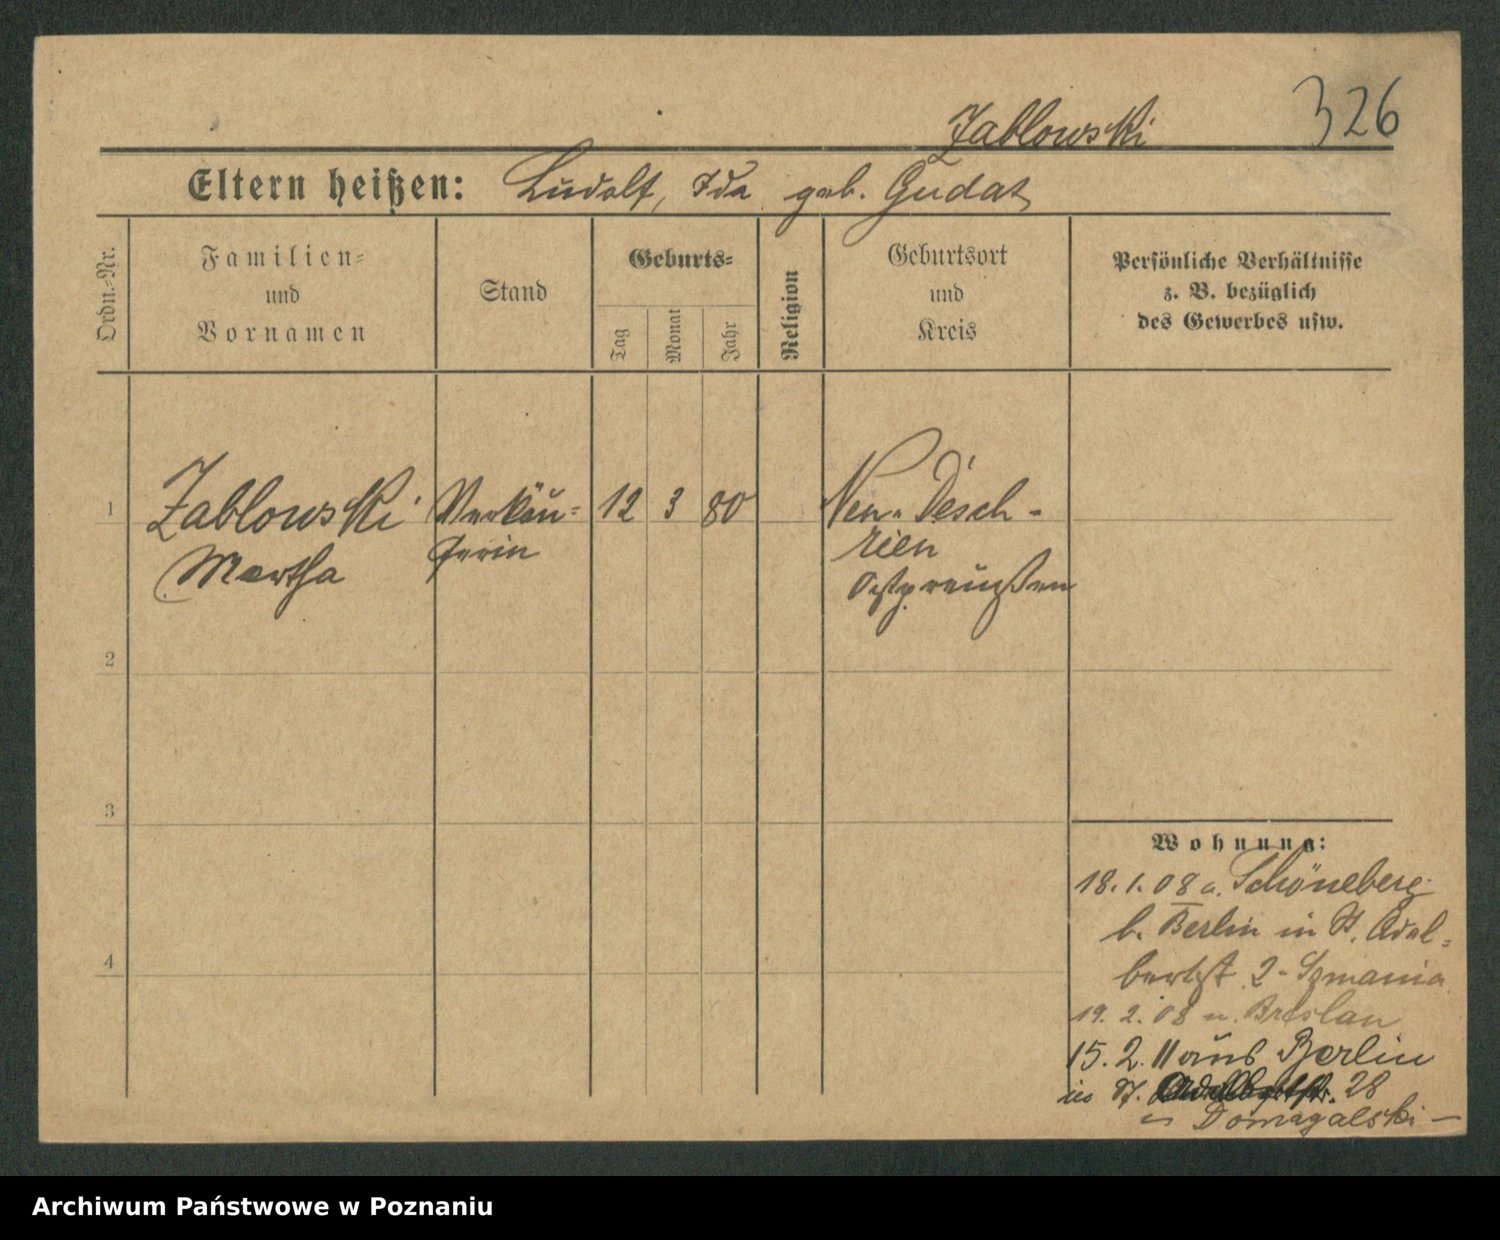 326
Zablowski
Eltern heißen: Ludolf, Ida geb. Gudat
Ordn.-Nr.
Familien-
und
Vornamen
Stand
Geburts-
Tag
Monat
Jahr
Religion
Geburtsort
und
Kreis
Persönliche Verhältnisse
z. B. bezüglich
des Gewerbes usw.
1
Zablowski
Martha
Verkäu-
ferin
12 3 80
Neu-Desch-
rien
Ostpreußen
2
3
4
Wohnung:
18.1.08 a. Schöneberg
b. Berlin in St. Adal-
bertst 2 - Szmania
19.2.08 n. Breslau
15.2.11 aus Berlin
in St. 28
Domagalski -
Archiwum Państwowe w Poznaniu